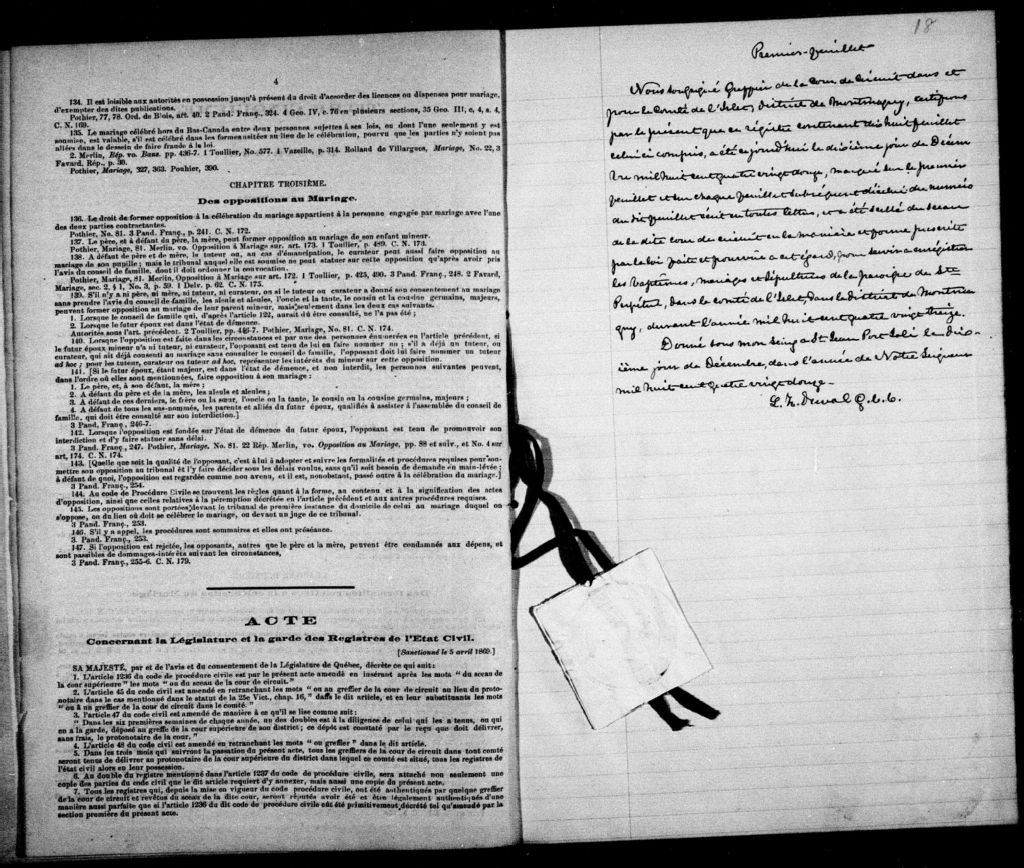 4
134. Il est loisible aux autorités en possession jusqu'à présent du droit d'accorder des licences ou dispenses pour mariage,
d'exempter des dites publications.
Pothier, 77, 78. Ord. de Blois, art. 40. 2 Pand. Franç., 324. 4 Geo. IV, c. 76 en plusieurs sections, 35 Geo. III, c. 4, s. 4,
C. N. 169.
135. Le mariage célébré hors du Bas-Canada entre deux personnes sujettes à ses lois, ou dont l'une seulement y est
soumise, est valable, s'il est célébré dans les formes usitées au lieu de la célébration, pourvu que les parties n'y soient pas
allées dans le dessein de faire fraude à la loi.
2. Merlin, Rép. vo. Bans. pp. 436-7. 1 Toullier, No. 577. 1 Vazeille, p. 314. Rolland de Villargues, Mariage, No. 22, 3
Favard. Rép., p. 30.
Pothier, Mariage, 327, 363. Pouhier, 390.
CHAPITRE TROISIÈME.
Des oppositions au Mariage.
136. Le droit de former opposition à la célébration du mariage appartient à la personne engagée par mariage avec l'une
des deux parties contractantes.
Pothier, No. 81. 3 Pand. Franç., p. 241. C. N. 172.
137. Le père, et à défaut du père, la mère, peut former opposition au mariage de son enfant mineur.
Pothier, Mariage, 81. Merlin. vo. Opposition à Mariage sur. art. 173. 1 Toullier, p. 489. C. N. 173.
138. A défaut de père et de mère, le tuteur ou, au cas d'émancipation, le curateur peut aussi faire opposition au
mariage de son pupille; mais le tribunal auquel elle est soumise ne peut statuer sur cette opposition qu'après avoir pris
l'avis du conseil de famille, dont il doit ordonner la convocation.
Pothier, Mariage, 81. Merlin, Opposition à Mariage sur art. 172. 1 Toullier, p. 425, 490. 3 Pand. Franç., 248. 2 Favard,
Mariage, sec. 2, § 1, No. 3, p. 59. 1 Delv. p. 62. C. N. 175.
139. S'il n'y a ni père, ni mère, ni tuteur, ni curateur, ou si le tuteur ou curateur a donné son consentement au mariage
sans prendre l'avis du conseil de famille, les aïeuls et aïeules, l'oncle et la tante, le cousin et la cousine germains, majeurs,
peuvent former opposition au mariage de leur parent mineur, mais seulement dans les deux cas suivants.
1. Lorsque le conseil de famille qui, d'après l'article 122, aurait dû être consulté, ne l'a pas été;
2. Lorsque le futur époux est dans l'état de démence.
Autorités sous l'art. précédent. 2 Toullier, pp. 446-7. Pothier, Mariage, No. 81. C. N. 174.
140. Lorsque l'opposition est faite dans les circonstances et par une des personnes énumérées en l'article précédent, si
le futur époux mineur n'a ni tuteur, ni curateur, l'opposant est tenu de lui en faire nommer un; s'il a déjà un tuteur, ou
curateur, qui ait déjà consenti au mariage sans consulter le conseil de famille, l'opposant doit lui faire nommer un tuteur
ad hoc; pour les tuteur, curateur ou tuteur ad hoc, représenter les intérêts du mineur sur cette opposition.
141. [Si le futur époux, étant majeur, est dans l'état de démence, et non interdit, les personnes suivantes peuvent,
dans l'ordre où elles sont mentionnées, faire opposition à son mariage:
1. Le père, et, à son défaut, la mère;
2. A défaut du père et de la mère, les aïeuls et aïeules;
3. A défaut de ces derniers, le frère ou la sœur, l'oncle ou la tante, le cousin ou la cousine germains, majeurs;
4. A défaut de tous les sus-nommés, les parents et alliés du futur époux, qualifiés à assister à l'assemblée du conseil de
famille, qui doit être consulté sur son interdiction.]
3 Pand. Franç., 246-7.
142. Lorsque l'opposition est fondée sur l'état de démence du futur époux, l'opposant est tenu de promouvoir son
interdiction et d'y faire statuer sans délai.
3 Pand. Franç., 247. Pothier, Mariage, No. 81. 22 Rép. Merlin, vo. Opposition au Mariage, pp. 88 et suiv., et No. 4 sur
art, 174. C. N. 174.
143. [Quelle que soit la qualité de l'opposant, c'est à lui à adopter et suivre les formalités et procédures requises pour soumettre
son opposition au tribunal et l'y faire décider sous les délais voulus, sans qu'il soit besoin de demande en main-levée;
à défaut de quoi, l'opposition est regardée comme non avenu, et il est, nonobstant, passé outre à la célébration du mariage.]
3 Pand. Franç., 254.
144. Au code de Procédure Civile se trouvent les règles quant à la forme, au contenu et à la signification des actes
d'opposition, ainsi que celles relatives à la péremption décrétée en l'article précédent et aux autres procédures requises.
145. Les oppositions sont portées devant le tribunal de première instance du domicile de celui au mariage duquel on
s'oppose, ou du lieu où doit se célébrer le mariage, ou devant un juge de ce tribunal.
3 Pand. Franç., 253.
146. S'il y a appel, les procédures sont sommaires et elles ont préséance.
3. Pand. Franç., 253.
147. Si l'opposition est rejetée, les opposants, autres que le père et la mère, peuvent être condamnés aux dépens, et
sont passibles de dommages-intérêts suivant les circonstances,
3 Pand. Franç., 255-6. C. N. 179.
ACTE
Concernant la Législature et la garde des Registres de l'Etat Civil.
[Sanctionné le 5 avril 1869.]
SA MAJESTÉ, par et de l'avis et du consentement de la Législature de Québec, décrète ce qui suit:
1. L'article 1236 du code de procédure civile est par le présent acte amendé en insérant après les mots "du sceau de
la cour supérieure" les mots "ou du sceau de la cour de circuit."
2. L'article 45 du code civil est amendé en retranchant les mots "ou au greffier de la cour de circuit au lieu du protonotaire
dans le cas mentionné dans le statut de la 25e Vict., chap. 16," dans le dit article, et en leur substituants les mots
"ou à un greffier de la cour de circuit dans le comté."
3. l'article 47 du code civil est amendé de manière à ce qu'il se lise comme suit;
"Dans les six premières semaines de chaque année, un des doubles est à la diligence de celui qui les a tenus, ou qui
en a la garde, déposé au greffe de la cour supérieure de son district; ce dépôt est constaté par le reçu que doit délivrer,
sans frais, le protonotaire de la cour."
4. L'article 48 du code civil est amendé en retranchant les mots "ou greffier" dans le dit article.
5. Dans les trois mois qui suivront la passation du présent acte, tous les greffiers de la cour de circuit dans tout comté
seront tenus de délivrer au protonotaire de la cour supérieure du district dans lequel ce comté est situé, tous les registres de
l'état civil alors en leur possession.
6. Au double du registre mentionné dans l'article 1237 du code de procédure civile, sera attaché non seulement une
copie des parties du code civil que le dit article requiert d'y annexer, mais aussi une copie du présent acte.
7. Tous les registres qui, depuis la mise en vigueur du code procédure civile, ont été authentiqués par quelque greffier
de la cour de circuit et revêtus du sceau de la dite cour, seront réputés avoir été et être légalement authentiqués d'une
manière aussi parfaite que si l'article 1236 du dit code de procédure civile eût été primitivement décrété tel qu'amendé par la
section première du présent acte.
18
Premier-feuillet
Nous soussigné Greffier de la Cour de Circuit dans et
pour le Comté de l'Islet, district de Montmagny, certifions
par le présent que ce régistre contenant dix huit feuillet
celui ci compris, a été ce jourd'hui le dixième jour de Décem
bre mil huit cent quatre vingt douze, marqué sur le premier
feuillet et sur chaque feuillet subséquent d'icelui du numéro
du dit feuillet écrit en toutes lettres, et a été scellé du sceau
de la dite cour de circuit en la manière et forme prescrite
par la loi faite et pourvue a cet égard, pour servir a enrégistrer
les baptêmes, mariages et sépultures de la paroisse de Ste
Perpétue, dans le comté de l'Islet, dans le district de Montma
gny, durant l'année mil huit cent quatre vingt treize.
Donné sous mon seing a St Jean Port Joli le dix-
ième jour de Décembre, dans l'année de Notre Seigneur
mil huit cent quatre vingt douze-
L. Z. Duval G. C. C.